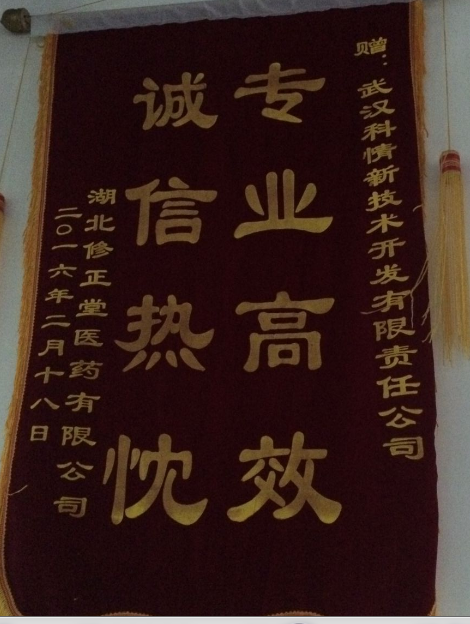 赠：武汉科情新技术开发有限责任公司
专业高效
诚信热忱
湖北修正堂医药有限公司
二〇一六年二月十八日